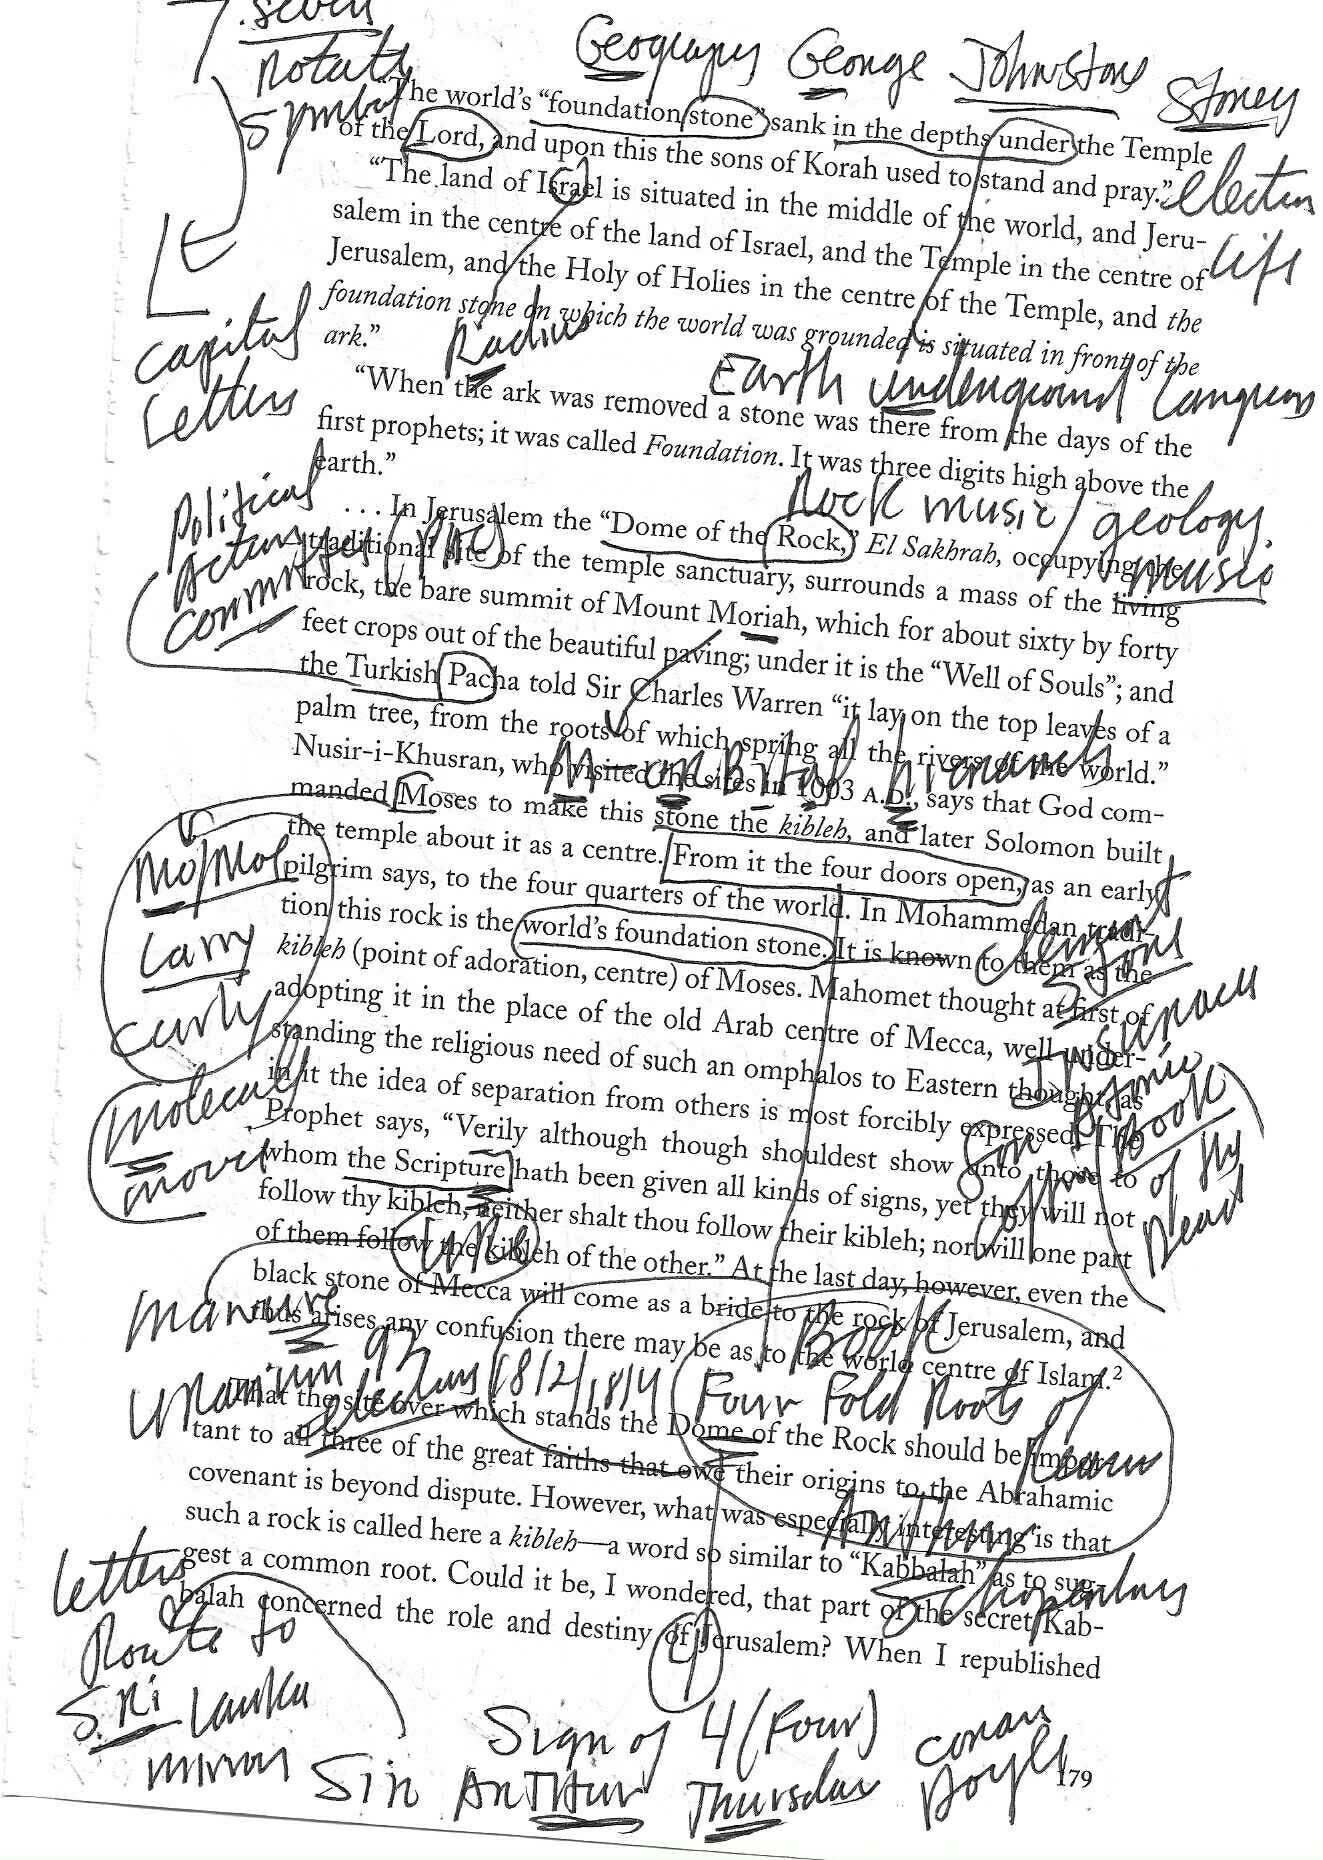 7. seven
notate
symbol
Geography George Johnstone Stoney
"The world's "foundation stone" sank in the depths under the Temple
of the Lord, and upon this the sons of Korah used to stand and pray."
electron
life
"The land of Israel is situated in the middle of the world, and Jeru-
salem in the centre of the land of Israel, and the Temple in the centre of
Jerusalem, and the Holy of Holies in the centre of the Temple, and the
foundation stone on which the world was grounded is situated in front of the
ark."
Radius
Earth underground
capital
Letters
"When the ark was removed a stone was there from the days of the
first prophets; it was called Foundation. It was three digits high above the
earth."
Rock music/geology
music
Political
Action
committees (PAC)
. . . In Jerusalem the "Dome of the Rock," El Sakhrah, occupying the
traditional site of the temple sanctuary, surrounds a mass of the living
rock, the bare summit of Mount Moriah, which for about sixty by forty
feet crops out of the beautiful paving; under it is the "Well of Souls"; and
the Turkish Pacha told Sir Charles Warren "it lay on the top leaves of a
palm tree, from the roots of which spring all the rivers of the world."
Nusir-i-Khusran, who visited the sites in 1003 A.D., says that God com-
manded Moses to make this stone the kibleh, and later Solomon built
the temple about it as a centre. From it the four doors open, as an early
pilgrim says, to the four quarters of the world. In Mohammedan tradi-
tion this rock is the world's foundation stone. It is known to them as the
kibleh (point of adoration, centre) of Moses. Mahomet thought at first of
adopting it in the place of the old Arab centre of Mecca, well under-
standing the religious need of such an omphalos to Eastern thought, as
in it the idea of separation from others is most forcibly expressed. The
Prophet says, "Verily although though shouldest show unto those to
whom the Scripture hath been given all kinds of signs, yet they will not
follow thy kibleh, neither shalt thou follow their kibleh; nor will one part
of them follow the kibleh of the other." At the last day, however, even the
black stone of Mecca will come as a bride to the rock of Jerusalem, and
thus arises any confusion there may be as to the world centre of Islam.²
M-orbital
Mo/Mol
Larry
curly
molecule
novel
Book
of the
Dead
manure
uranium 92
electrons
Book
Four Fold Roots of
Reason
Arthur
That the site over which stands the Dome of the Rock should be impor-
tant to all three of the great faiths that owe their origins to the Abrahamic
covenant is beyond dispute. However, what was especially interesting is that
such a rock is called here a kibleh—a word so similar to "Kabbalah" as to sug-
gest a common root. Could it be, I wondered, that part of the secret Kab-
balah concerned the role and destiny of Jerusalem? When I republished
letters
Route to
Sri Lanka
mirror
Sign of 4 (Four) Conan
Sir Arthur Thursday Doyle
179